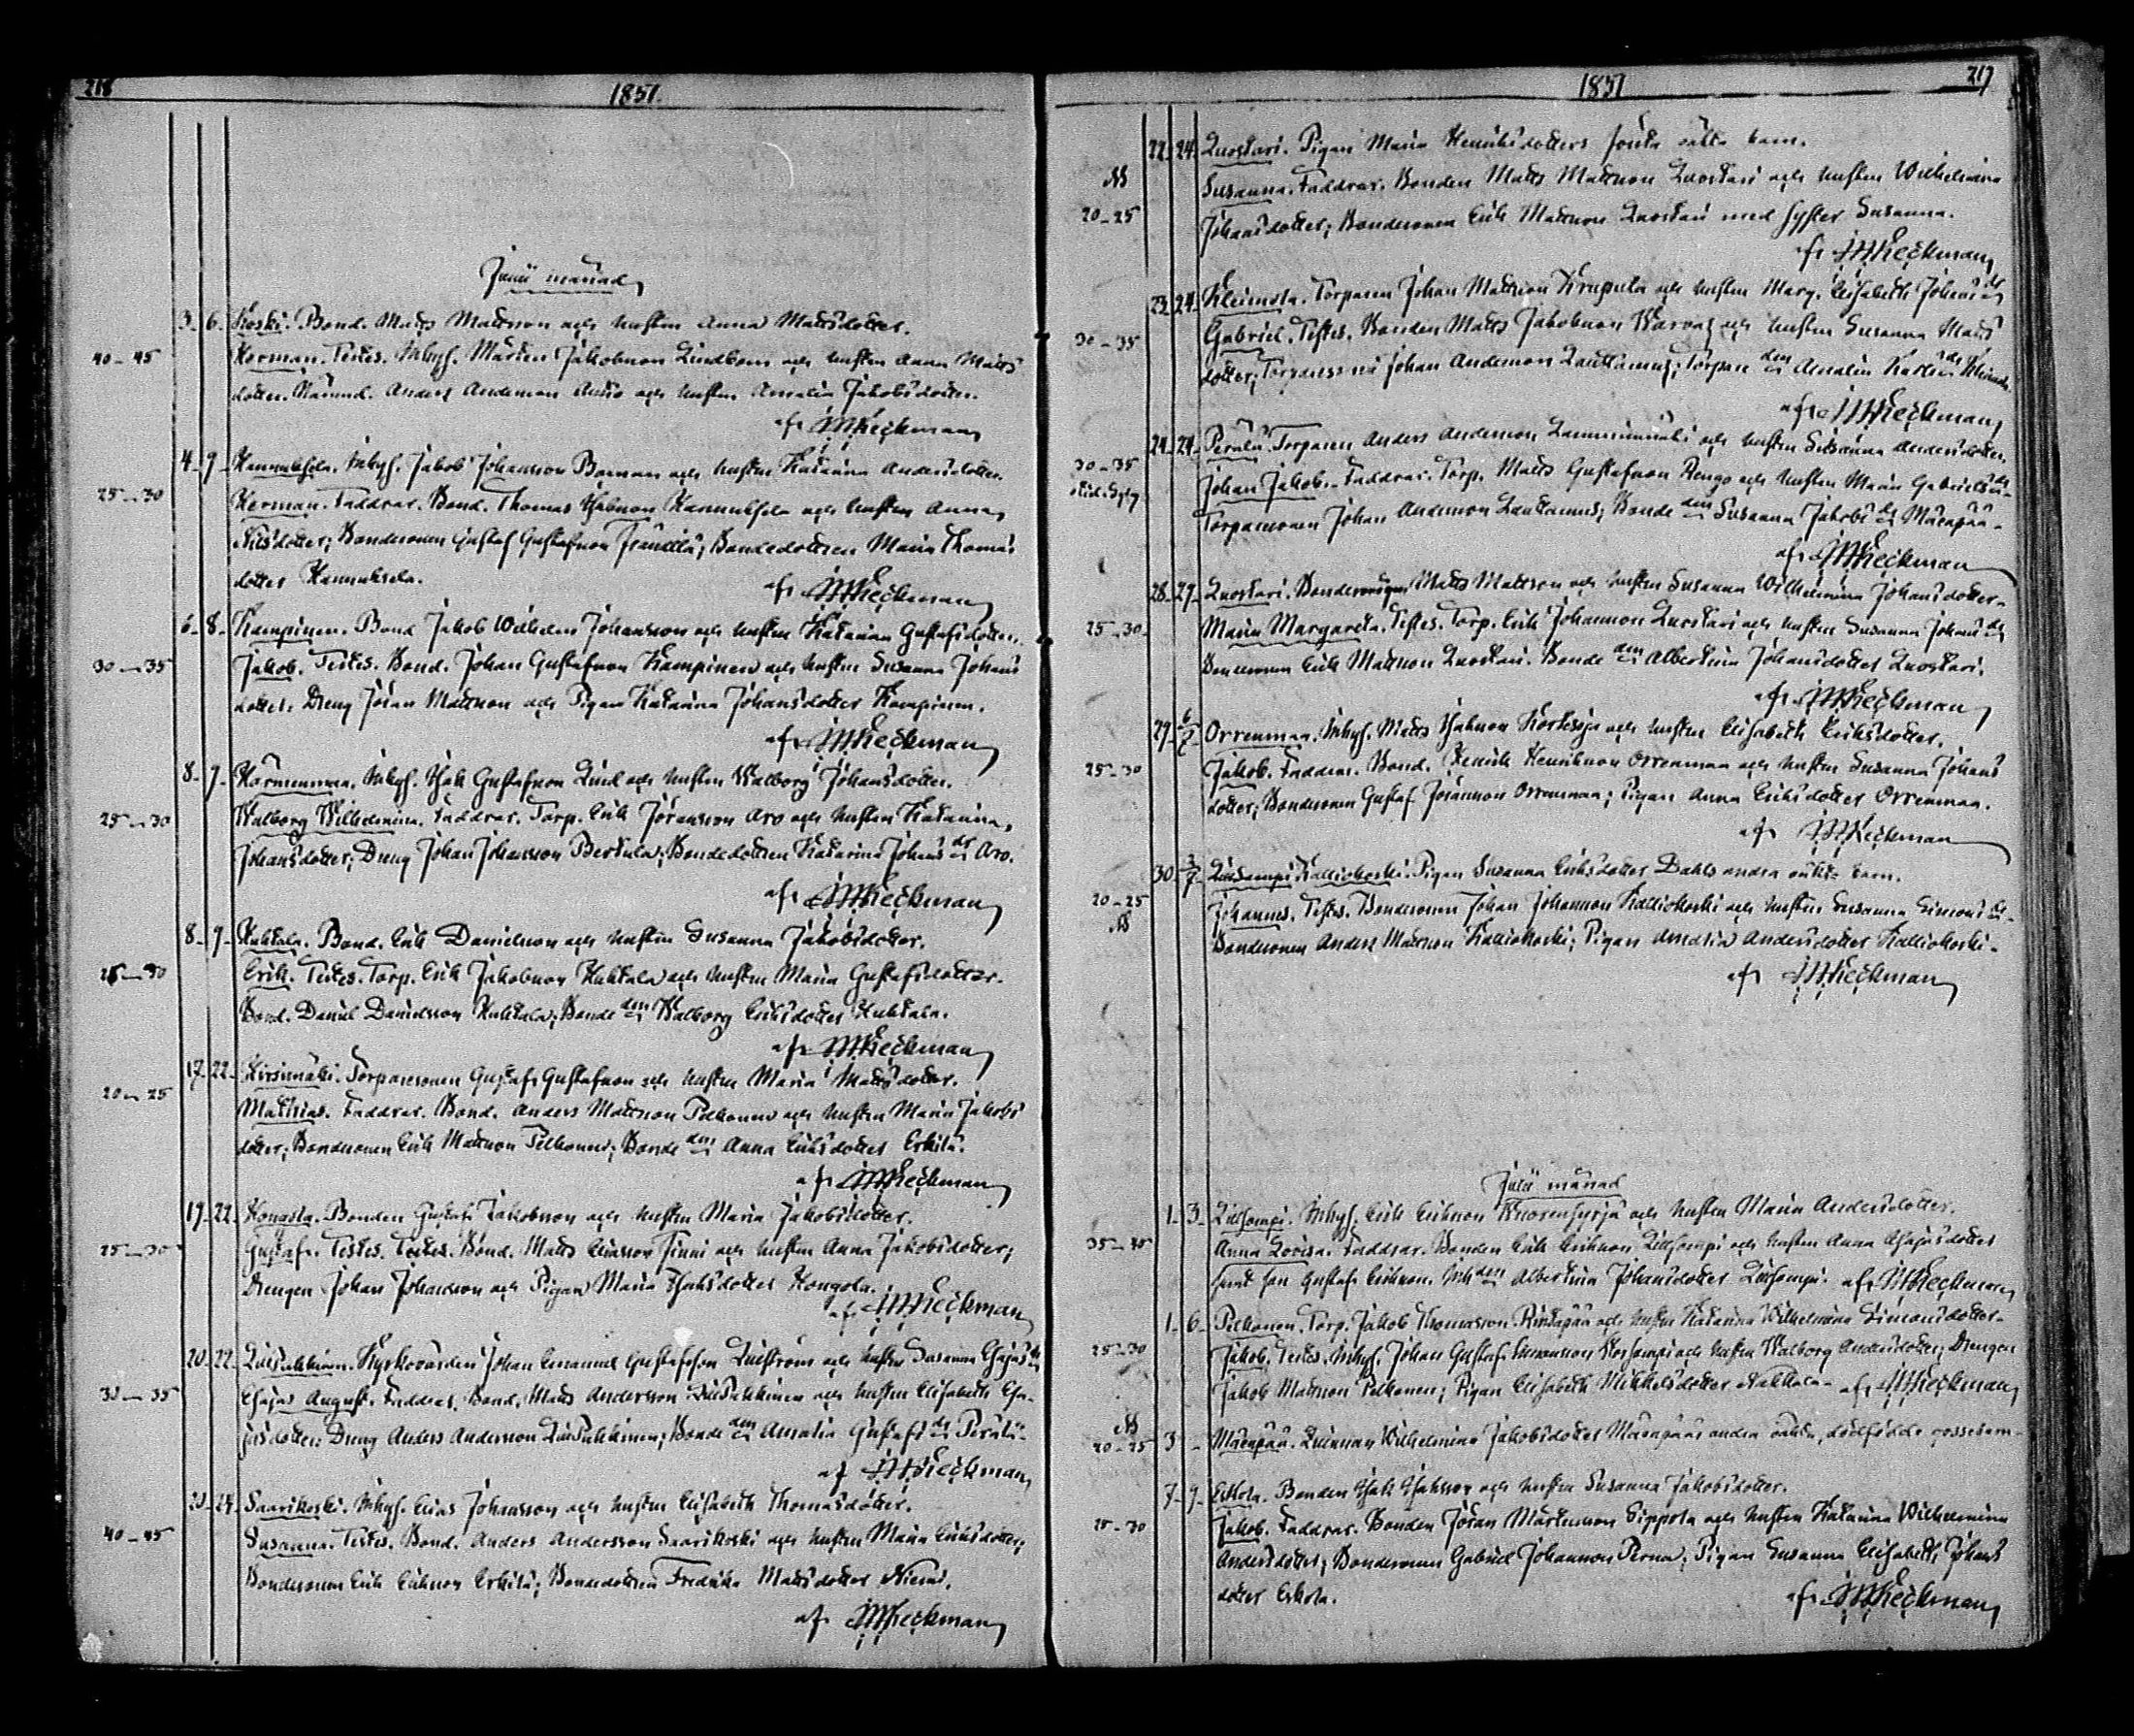 218 1851.
Junii månad
3. 6. Koski. Bond. Matts Mattsson och hustru Anna Mattsdotter.
40–45 Herman. Testes. Inhys. Mårten Jakobsson Lindbom och hustru Anna Matts
dotter. Anders Andersson och hustru Amalia Jakobsdotter.
af JMHeckman
4. 9. Hannuksela. Inhys. Jakob Johansson och hustru Katarina Andersdotter.
25–30 Herman. Faddrar. Bond. Thomas Isaksson Hannuksela och hustru Anna
Nilsdotter; Bondesonen Gustaf Gustafsson; Bondedottren Maria Thomas
dotter Hannuksela. af JMHeckman
6. 8. Kampinen. Bond Jakob Wilhelm Johansson och hustru Katarina Gustafsdotter.
30–35 Jakob. Testes. Bond. Johan Gustafsson Kampinen och hustru Susanna Johans
dotter. Dreng Jöran Mattsson och Pigan Katarina Johansdotter Kampinen.
af JMHeckman
8. 9. Inhys. Isak Gustafsson och hustru Walborg Johansdotter.
25–30 Walborg Wilhelmina. Faddrar. Torp. Erik Jöransson Aro och hustru Katarina
Johansdotter; Dreng Johan Johansson Bertula; Bondedottren Katarina Johans dr Aro.
af JMHeckman
8. 9. Huhtala. Bond. Erik Danielsson och hustru Susanna Jakobsdotter.
25–30 Erik. Testes. Torp. Erik Jakobsson Huhtala och hustru Maria Gustafsdotter.
Bond. Daniel Danielsson Huhtala; Bonde den Walborg Eriksdotter Huhtala.
af JMHeckman
17. 22. Hirsimäki. Torparesonen Gustaf Gustafsson och hustru Maria Mattsdotter.
20–25 Mathias. Faddrar. Bond. Anders Mattsson Pelkonen och hustru Maria Jakobs
dotter; Bondesonen Erik Mattsson Pelkonen; Bonde den Anna Eriksdotter Erkilä.
af JMHeckman
19. 22. Hongola. Bonden Gustaf Jakobsson och hustru Maria Jakobsdotter.
25–30 Gustaf. Testes. Testes. Bond. Matts Eliasson och hustru Anna Jakobsdotter;
Drengen Johan Johansson och Pigan Maria Isaksdotter Hongola.
af JMHeckman
20. 22. Kyrkovärden Johan Emanuel Gustafsson och hustru Susanna Esajæ dr
30–35 Esajas August. Faddrar. Bond. Matts Andersson och hustru Elisabeth Esa-
jasdotter; Dreng Anders Andersson; Bonde den Amalia Gustafs dr Perälä.
af JMHeckman
23. 24. Saarikoski. Inhys. Elias Johansson och hustru Elisabeth Thomasdotter.
40–45 Susanna. Testes. Bond. Anders Andersson Saarikoski och hustru Maria Eriksdotter;
Bondesonen Erik Eriksson Erkilä; Bondedottren Fredrika Mattsdotter Niemi.
af JMHeckman
1851 219
22. 24. Luostari. Pigan Maria Henriksdotters oäkta barn.
20–25 Susanna. Faddrar. Bonden Matts Mattsson Luostari och hustru Wilhelmina
Johansdotter; Bondesonen Erik Mattsson Luostari med syster Susanna.
af JMHeckman
23. 24. Kleimola. Torparen Johan Mattsson Krapula och hustru Marg. Elisabeth Johans dr
30–35 Gabriel. Testes. Bonden Matts Jakobsson och hustru Susanna Matts
dotter; Johan Andersson; Torpare den Amalia
af JMHeckman
24. 29. Perälä. Torparen Anders Andersson och hustru Susanna Andersdotter.
30–35 Johan Jakob. Faddrar. Torp. Matts Gustafsson Rengo och hustru Maria Gabriels dr
Torparesonen Johan Andersson; Bonde den Susanna Jakobs dr Mäenpää.
af JMHeckman
28. 29. Luostari. Matts Mattsson och hustru Susanna Wilhelmina Johansdotter.
25–30 Maria Margareta. Testes. Torp. Erik Johansson Luostari och hustru Susanna Johans dr
Bondesonen Erik Mattsson Luostari. Bonde den Albertina Johansdotter Luostari.
af JMHeckman
29. 6/7 Orrenmaa. Inhys. Matts Isaksson Korkeoja och hustru Elisabeth Eriksdotter.
25–30 Jakob. Faddrar. Bond. Henrik Henriksson Orrenmaa och hustru Susanna Johans
dotter; Bondesonen Gustaf Jöransson Orrenmaa; Pigan Anna Eriksdotter Orrenmaa.
af JMHeckman
30. 3/7 Kalliokoski. Pigan Susanna Eriksdotter Dahls andra oäkta barn.
20–25 Johannes. Testes. Bondesonen Johan Johansson Kalliokoski och hustru Susanna Simons dr.
Bondesonen Anders Mattsson Kalliokoski; Pigan Amalia Andersdotter Kalliokoski.
af JMHeckman
Julii månad
1. 3. Inhys. Erik Eriksson och hustru Maria Andersdotter.
35–40 Anna Lovisa. Faddrar. Bonden Erik Eriksson och hustru Anna Esajasdotter
samt son Gustaf Eriksson. Albertina Johansdotter af JMHeckman
1. 6. Pelkonen. Torp. Jakob Thomasson Rintapää och hustru Katarina Wilhelmina Simonsdotter.
25–30 Jakob. Testes. Inhys. Johan Gustaf och hustru Walborg Andersdotter; Drengen
Jakob Mattsson Pelkonen; Pigan Elisabeth Mikkelsdotter af JMHeckman
20–25 3 – Mäenpää. Qvinnan Wilhelmina Jakobsdotter Mäenpääs andra oäkta, dödfödde gossebarn.
7. 9. Eskola. Bonden Isak Isaksson och hustru Susanna Jakobsdotter.
25–30 Jakob. Faddrar. Bonden Jöran Mårtensson Sippola och hustru Katarina Wilhelmina
Andersdotter; Bondesonen Gabriel Johansson Perna; Pigan Susanna Elisabeth Johans
dotter Eskola. af JMHeckman